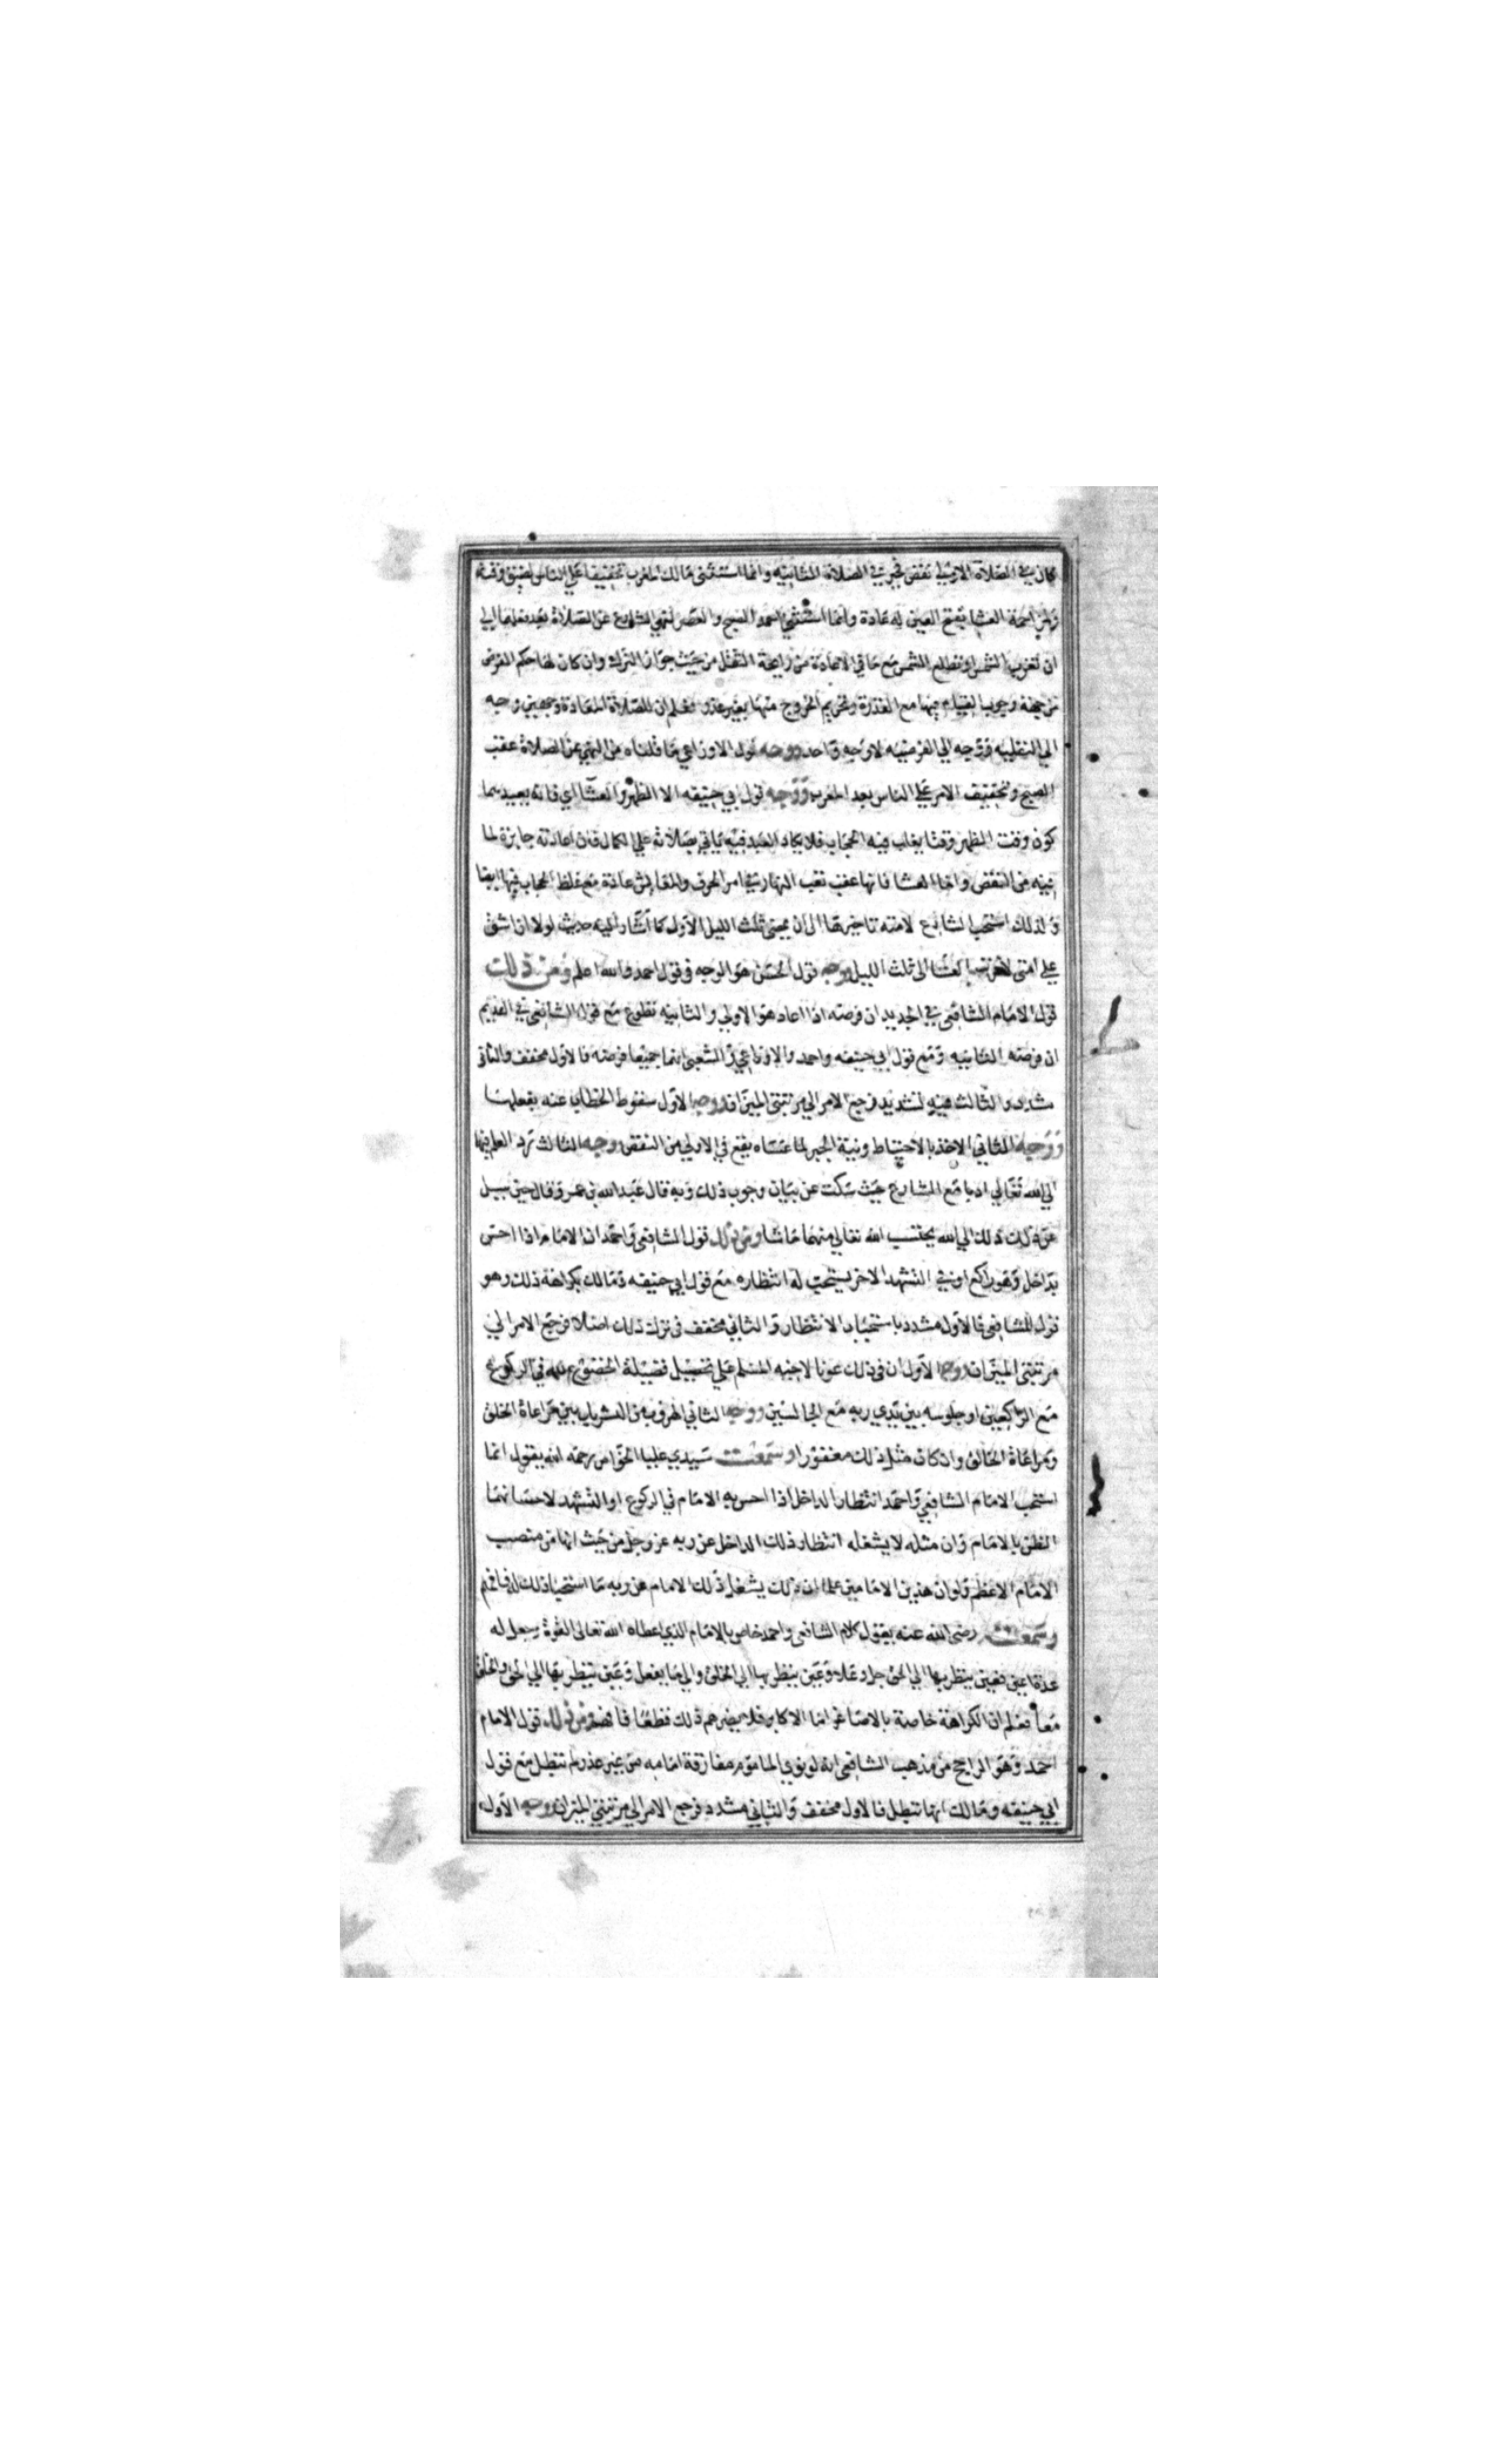 كان في الصلاة الاولي نقص يجبر في الصلاة الثانيه وانما استثنى مالك المغرب تخفيفا علي الناس لضيق وقته
ولمزاحمة العشا بفتح العين له عادة وانما استثني احمد الصبح والعصر لنهي الشارع عن الصلاة بعد فعلها الي
ان تغرب الشمس او تطلع الشمس مع ما في الاعادة من رايحة التنفل من حيث جواز الترك وان كان لها حكم الفرض
من جهة وجوب القيام فيها مع القدرة وتحريم الخروج منها بغير عذر فعلم ان للصلاة المعادة وجهين وجه
الي النفليه ووجه الي الفرضيه لا وجه واحد ووجه قول الاوزاعي ما قلناه من النهي عن الصلاة عقب
الصبح وتخفيف الامر علي الناس بعد المغرب ووجه قول ابي حنيفه الا الظهر والعشا اي فانه يعيدهما
كون وقت الظهر وقتا يغلب فيه الحجاب فلا يكاد العبد فيه ياتي بصلاته علي الكمال فان اعادته جابرة لما
فيه من النقص واما العشا فانها عقب تعب النهار في امر الحرف والمعايش عادة مع غلظ الحجاب فيها ايضا
ولذلك استحب الشارع لامته تاخيرها الى ان يمضي ثلث الليل الاول كما اشار اليه حديث لولا ان اشق
علي امتى لاخرت العشا الى ثلث الليل ووجه قول الحسن هو الوجه في قول احمد والله اعلم ومن ذلك
قول الامام الشافعى في الجديد ان فرضه اذا اعاد هو الاولي والثانيه تطوع مع قول الشافعى في القديم
ان فرضه الثانيه ومع قول ابي حنيفه واحمد والاوزاعي والشعبى انهما جميعا فرضه فالاول مخفف والثاني
مشدد والثالث فيه تشديد فرجع الامر الي مرتبتى الميزان ووجه الاول سقوط الخطاب عنه بفعلها
ووجه الثاني الاخذ بالاحتياط ونية الجبر لما عساه يقع في الاولي من النقص ووجه الثالث رد العلم فيها
الي الله تعالي ادبا مع الشارع حيث سكت عن بيان وجوب ذلك وبه قال عبد الله بن عمر وقال حين سيل
عن ذلك ذلك الي الله يحتسب الله تعالي منهما ما شا ومن ذلك قول الشافعى واحمد ان الامام اذا احس
بداخل وهو راكع او في التشهد الاخر يستحب له انتظاره مع قول ابي حنيفه ومالك بكراهة ذلك وهو
قول للشافعى فالاول مشدد باستحباب الانتظار والثاني مخفف فى ترك ذلك اصلا فرجع الامر الي
مرتبتى الميزان ووجه الاول ان فى ذلك عونا لاخيه المسلم علي تحصيل فضيلة الخضوع لله في الركوع
مع الراكعين او جلوسه بين يدي ربه مع الجالسين ووجه الثاني الهروب من التشريك بين مراعاة الخلق
ومراعاة الخالق وان كان مثل ذلك مغفورا وسمعت سيدي عليا الخواص رحمه الله يقول انما
استحب الامام الشافعي واحمد انتظار الداخل اذا احس به الامام في الركوع او التشهد لاحسانهما
الظن بالامام وان مثله لا يشغله انتظار ذلك الداخل عن ربه عز وجل من حيث انها من منصب
الامام الاعظم ولو ان هذين الامامين علما ان ذلك يشغل ذلك الامام عن ربه ما استحبا ذلك له فافهم
وسمعته رضى الله عنه يقول كلام الشافعى واحمد خاص بالامام الذي اعطاه الله تعالى القوة وجعل له
عدة اعين فعين ينظر بها الي الحق جل وعلا وعين ينظر بها الي الخلق والي ما يفعل وعين ينظر بها الي الحق والخلق
معا فعلم ان الكراهة خاصة بالاصاغر اما الاكابر فلا يضرهم ذلك قطعا فافهم ومن ذلك قول الامام
احمد وهو الراجح من مذهب الشافعى انه لو نوي الماموم مفارقة امامه من غير عذر لم تبطل مع قول
ابي حنيفه ومالك انها تبطل فالاول مخفف والثاني مشدد فرجع الامر الي مرتبتي الميزان ووجه الاول